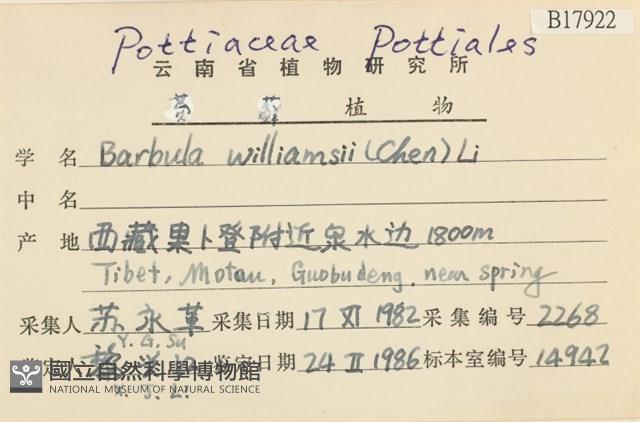 B17922
Pottiaceae Pottiales
云南省植物研究所
苔藓植物
学名 Barbula williamsii (Chen) Li
中名
产地 西藏果卜登附近泉水边 1800m
Tibet, Motau, Guobudeng, near spring
采集人 苏永革 采集日期 17 XI 1982 采集编号 2268
Y. G. Su
鉴定日期 24 II 1986 标本室编号 14942
國立自然科學博物館
NATIONAL MUSEUM OF NATURAL SCIENCE